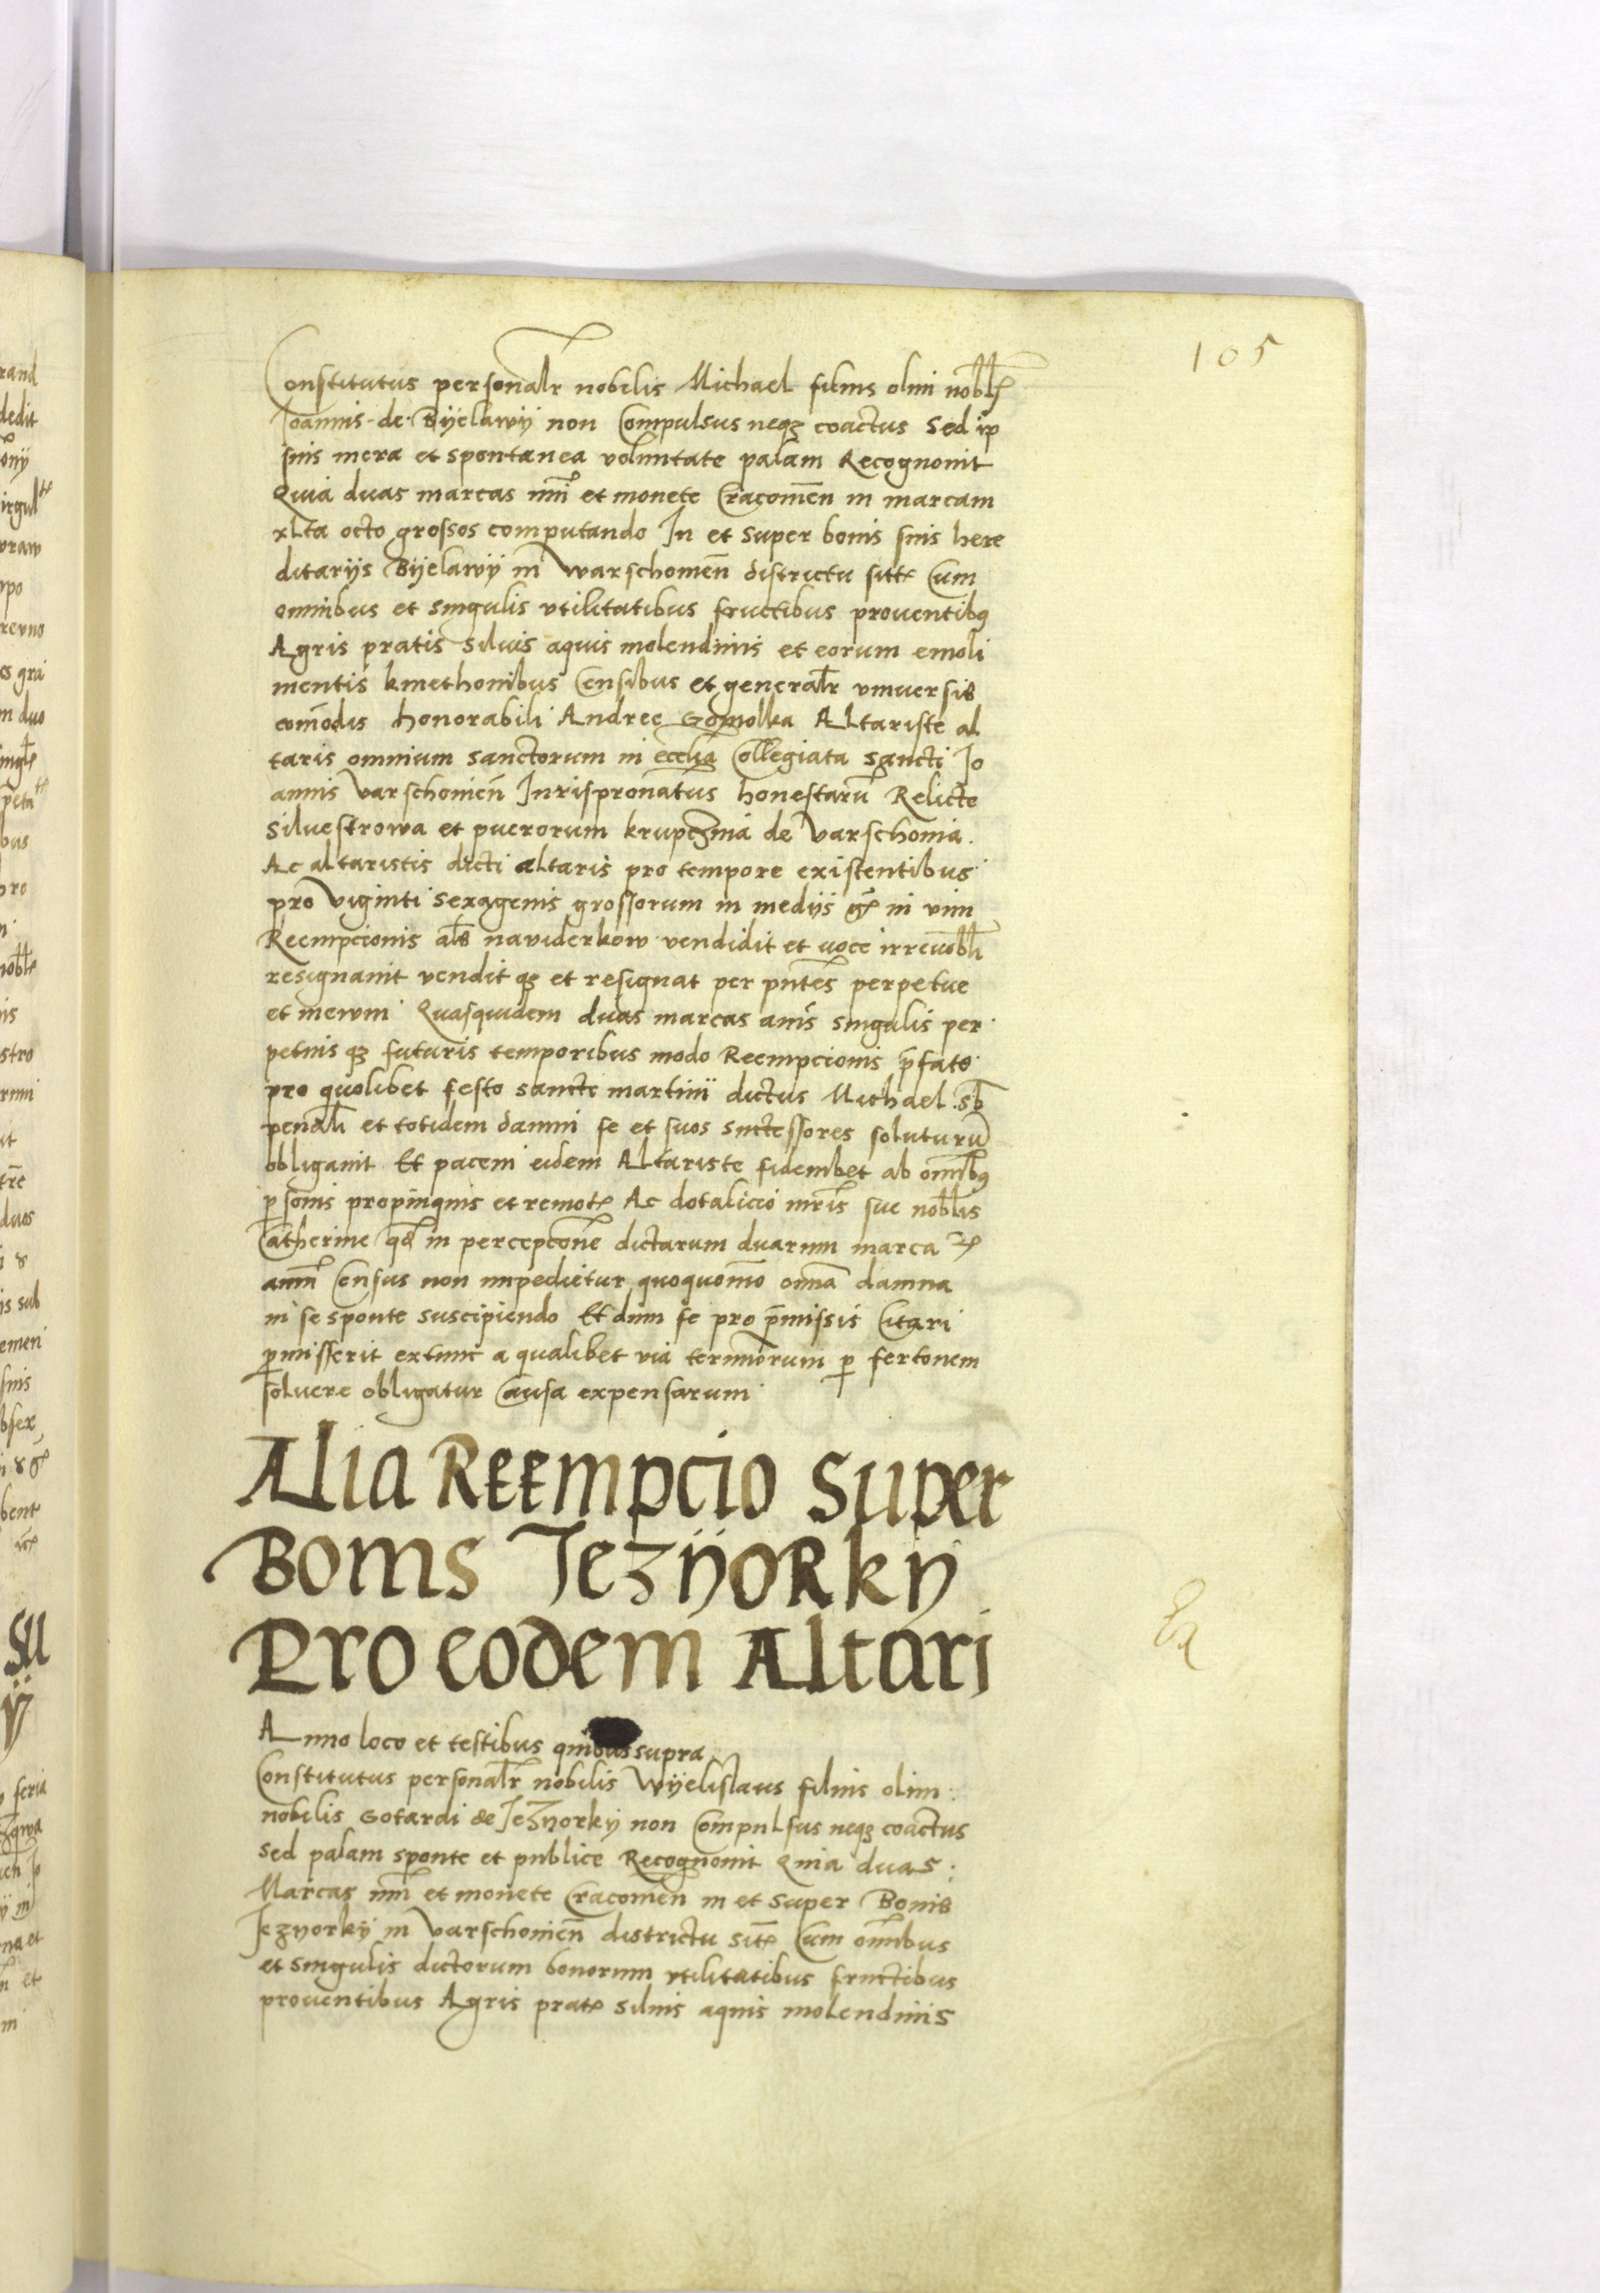 105
Constitutus personalr nobilis Michael filius olim nobilis
Joannis de Bÿelawÿ non Compulsus neqz coactus Sed ip
sius mera et spontanea voluntate palam Recognouit
Quia duas marcas nūi et monete Cracouien in marcam
xLta octo grossos computando In et super bonis suis here
ditarÿs Bÿelawÿ in Warschouien districtu sitt Cum
omnibus et singulis vtilitatibus fructibus prouentibq
Agris pratis Siluis aquis molendinis et eorum emoli
mentis kmethonibus Censibus et generalr vniuersis
comodis honorabili Andree Gomolka Altariste al
taris omnium sanctorum in ecclia Collegiata Sancti Jo
annis Varschouien Jurispronatus honestaru Relicte
Siluestrowa et puerorum krupczina de Varschouia.
Ac altaristis dicti altaris pro tempore existentibus
pro Viginti sexagenis grossorum in medÿs gr in vim
Reempcionis als naviderkow vendidit et voce irreuobli
resignauit vendit qz et resignat per pntes perpetue
et in ewm Quasquidem duas marcas anis singulis per
petuis qz futuris temporibus modo Reempcionis pfato
pro quolibet festo sancti martini dictus Michael sb
penali et totidem damni se et suos successores soluturu
obligauit Et pacem eidem Altariste fidembet ab omibq
psonis propinquis et remot Ac dotalicio mris sue noblis
Catherine qd in percepcone dictarum duarum marca
annu Census non impedietur quoquomo omia damna
in se sponte suscipiendo Et dum se pro pmissis Citari
pmisserit extunc a qualibet via terminorum p fertonem
soluere obligatur Causa expensarum
ALia REEmpcio super
Bonis Jezÿorkÿ
Pro eodem Altari
Anno loco et testibus quibus supra
Constitutus personalr nobilis Wÿelislaus filius olim
nobilis Gotardi de Jezÿorkÿ non Compulsus neqz coactus
Sed palam sponte et publice Recognouit Quia duas
Marcas nūi et monete Cracouien in et super Bonis
Jezÿorkÿ in Varschouien districtu sit Cum omibus
et singulis dictorum bonorum vtilitatibus fructibus
prouentibus Agris prat siluis aquis molendinis